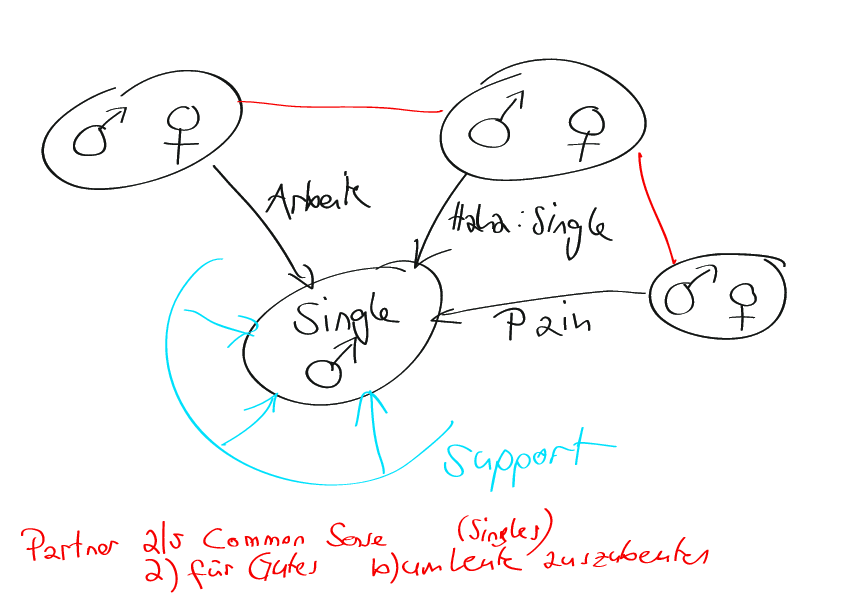 Arbeit
Haha: Single
Single
Pain
Support
Partner als Common (Singles)
a) für Gutes b) um Leute auszubeuten